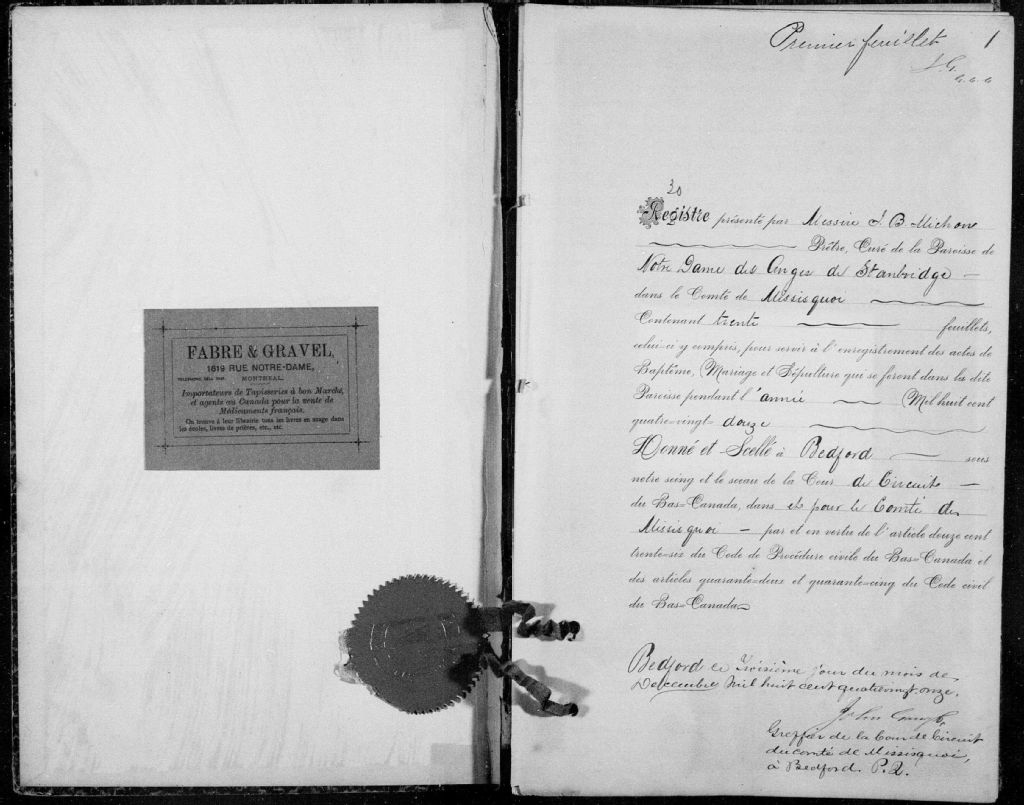 FABRE & GRAVEL,
1619 RUE NOTRE-DAME,
MONTREAL.
Importateurs de Tapisseries à bon Marché,
et agents au Canada pour la vente de
Médicaments français.
On trouve à leur librairie tous les livres en usage dans
les écoles, livres de prières, etc., etc.
Premier feuillet 1
J. G.
30
Registre présenté par Messire J. B. Michon
Prêtre, Curé de la Paroisse de
Notre Dame des Anges de Stanbridge
dans le Comté de Missisquoi
Contenant trente feuillets,
celui-ci y compris, pour servir à l'enregistrement des actes de
Baptême, Mariage et Sépulture qui se feront dans la dite
Paroisse pendant l'année Mil huit cent
quatre-vingt- douze
Donné et Scellé à Bedford sous
notre seing et le sceau de la Cour de Circuit
du Bas-Canada, dans et pour le Comté de
Missisquoi par et en vertu de l'article douze cent
trente-six du Code de Procédure civile du Bas-Canada et
des articles quarante-deux et quarante-cinq du Code civil
du Bas-Canada
Bedford ce Troisième jour du mois de
Decembre Mil huit cent quatrevingt onze.
John
Greffier de la Cour de Circuit
du comté de Missisquoi,
à Bedford P. Q.